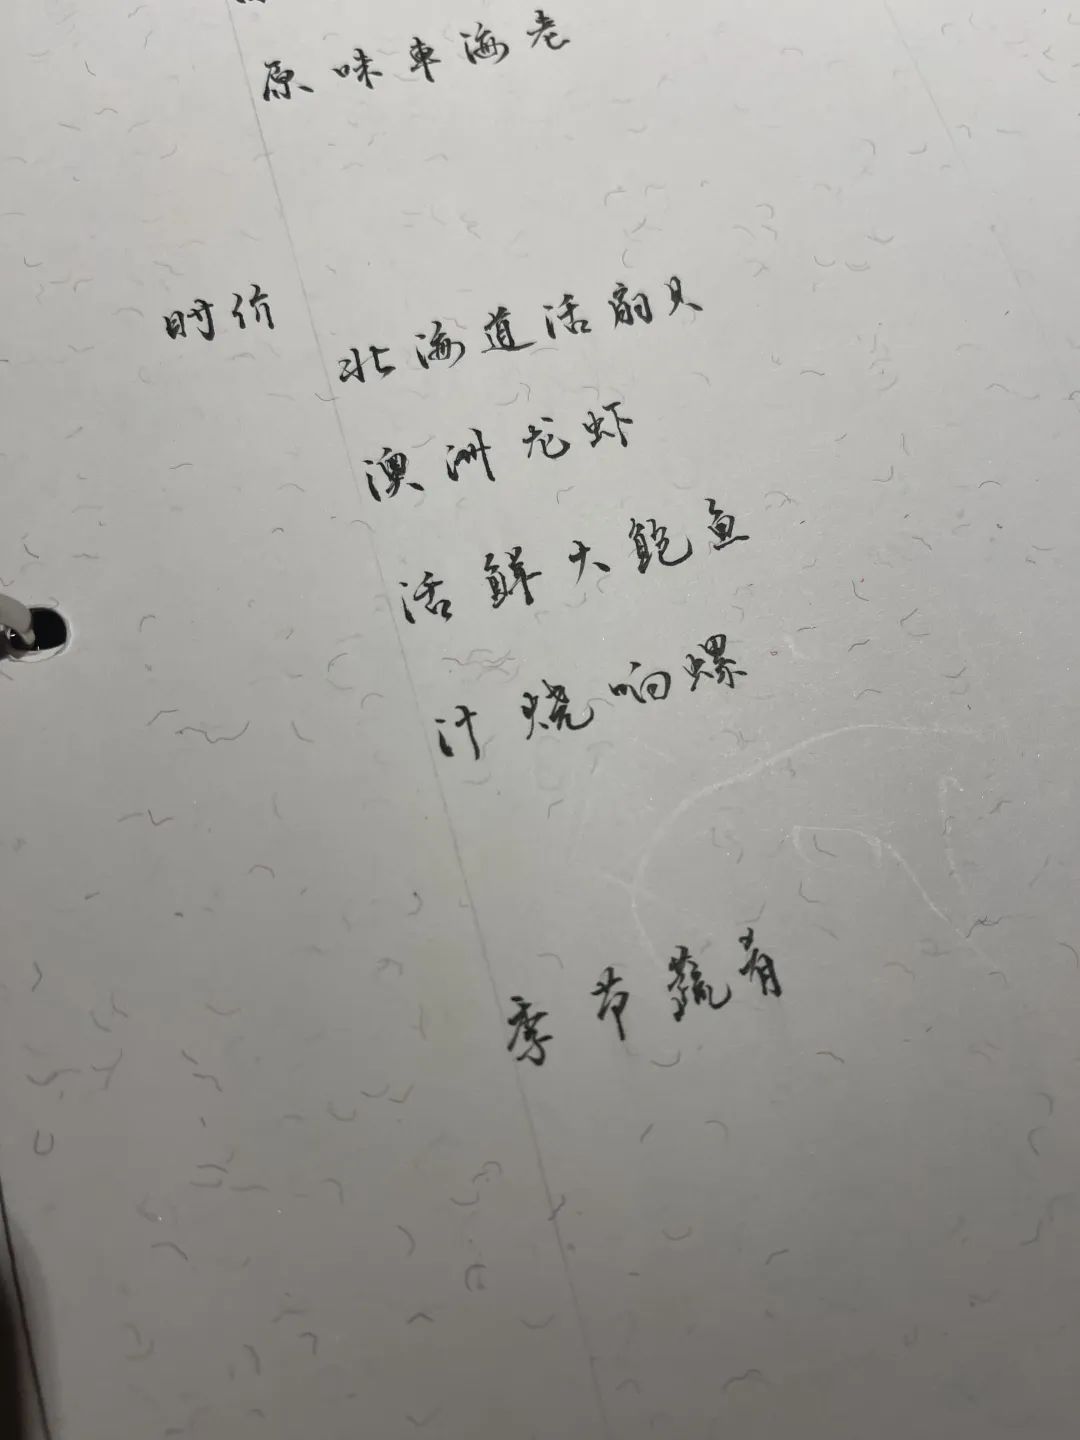 原味車海老
时价
北海道活扇贝
澳洲龙虾
活鲜大鲍鱼
汁烧响螺
季节蔬肴